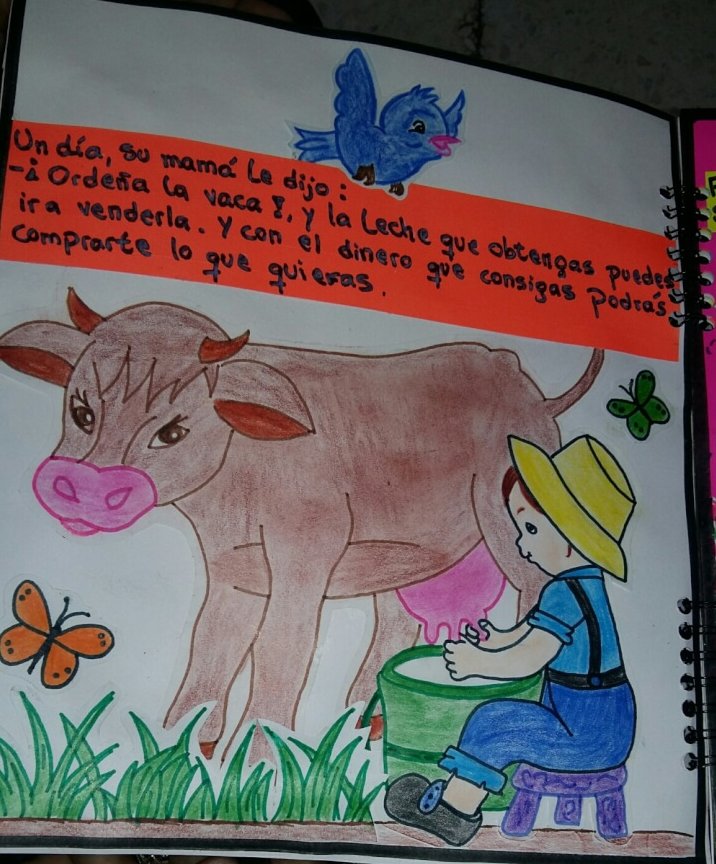 Un día, su mamá le dijo:
-¡Ordeña la vaca!, y la leche que obtengas puedes
ira venderla. Y con el dinero que consigas podrás
comprarte lo que quieras.